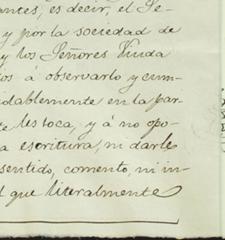 antes, es decir, el Se-
y por la sociedad de
y los Señores Viuda
dos á observarlo y cum-
idablemente en la par-
te les toca, y á no opo-
a escritura, ni darle
sentido, comento, ni in-
l que literalmente